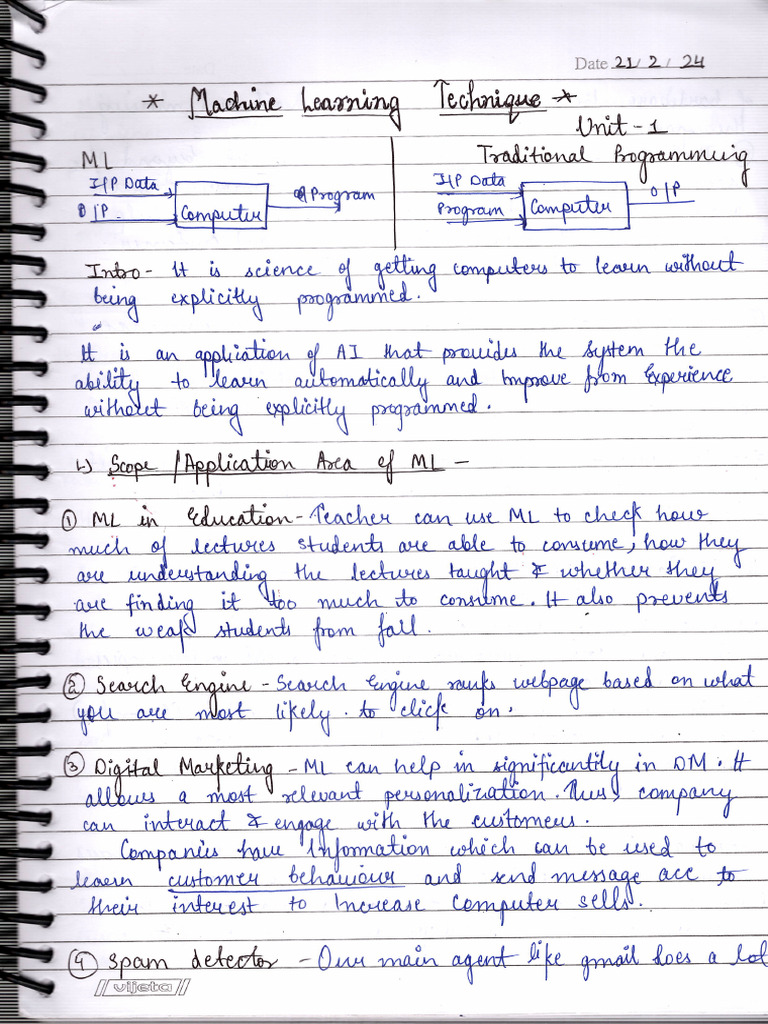 Date 21/2/24
* Machine Learning Technique *
Unit - 1
ML
I/P Data
O/P
Computer
Program
Traditional Programming
I/P Data
Program
Computer
O/P
Intro - It is science of getting computers to learn without
being explicitly programmed.
It is an application of AI that provides the system the
ability to learn automatically and improve from Experience
without being explicitly programmed.
Scope / Application Area of ML -
① ML in Education - Teacher can use ML to check how
much of lectures students are able to consume, how they
are understanding the lectures taught & whether they
are finding it too much to consume. It also prevents
the weak students from fall.
② Search Engine - Search Engine ranks webpage based on what
you are most likely. to click on.
③ Digital Marketing - ML can help in significantily in DM. It
allows a most relevant personalization. Thus, company
can interact & engage with the customers.
Companies have Information which can be used to
learn customer behaviour and send message acc to
their interest to Increase Computer sells.
④ Spam detector - Our main agent like gmail does a lot
vijeta